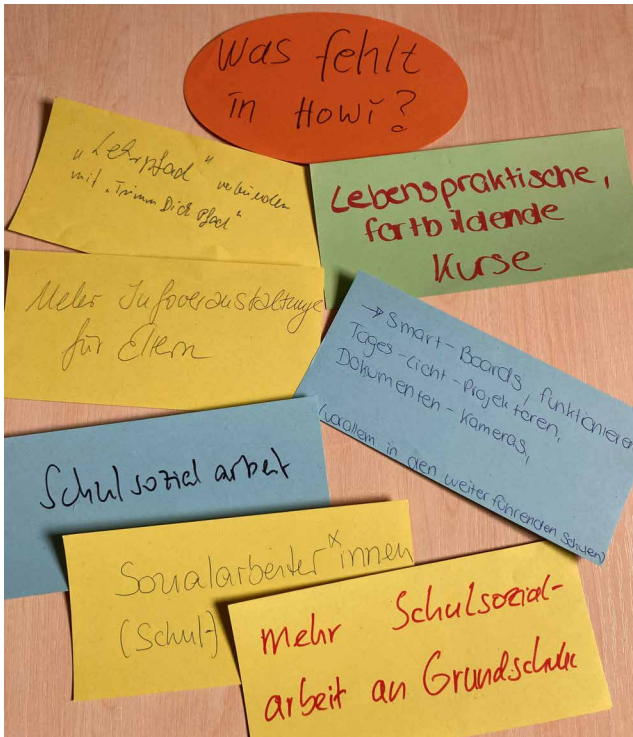 Was fehlt
in Howi?
"Lehrpfad" verbinden
mit "Trimm Dich Pfad"
Lebenspraktische,
fortbildende
Kurse
Mehr Infoveranstaltunge
für Eltern
→ Smart-Boards, funktioniere
Tages-Licht-Projektoren,
Dokumenten-Kameras,
(vorallem in den weiterführenden Schulen)
Schulsozialarbeit
Sozialarbeiter*innen
(Schul-)
mehr Schulsozial-
arbeit an Grundschule